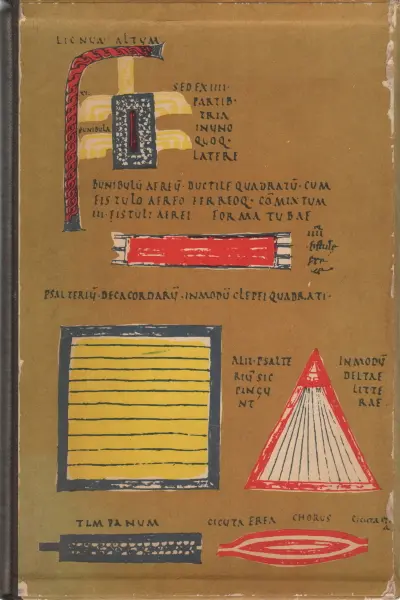 LIGNUM ALTUM
SED EX IIII·
PARTIB·
TRIA
IN UNO
QUOQ·
LATERE
BUNIBULA
BUNIBULŪ AEREŪ·DUCTILE QUADRATŪ·CUM
FISTULO AEREO FERREOQ·CŌMIXTUM
III·FISTULI AEREI FORMA TUBAE
IIII
fistule
PSALTERIŪ·DECACORDARŪ·INMODŪ CLEPEI QUADRATI·
ALII·PSALTE
RIŪ SIC
PINGU
NT
INMODŪ
DELTAE
LITTE
RAE
TIMPANUM
CICUTA EREA
CHORUS
CICUTA